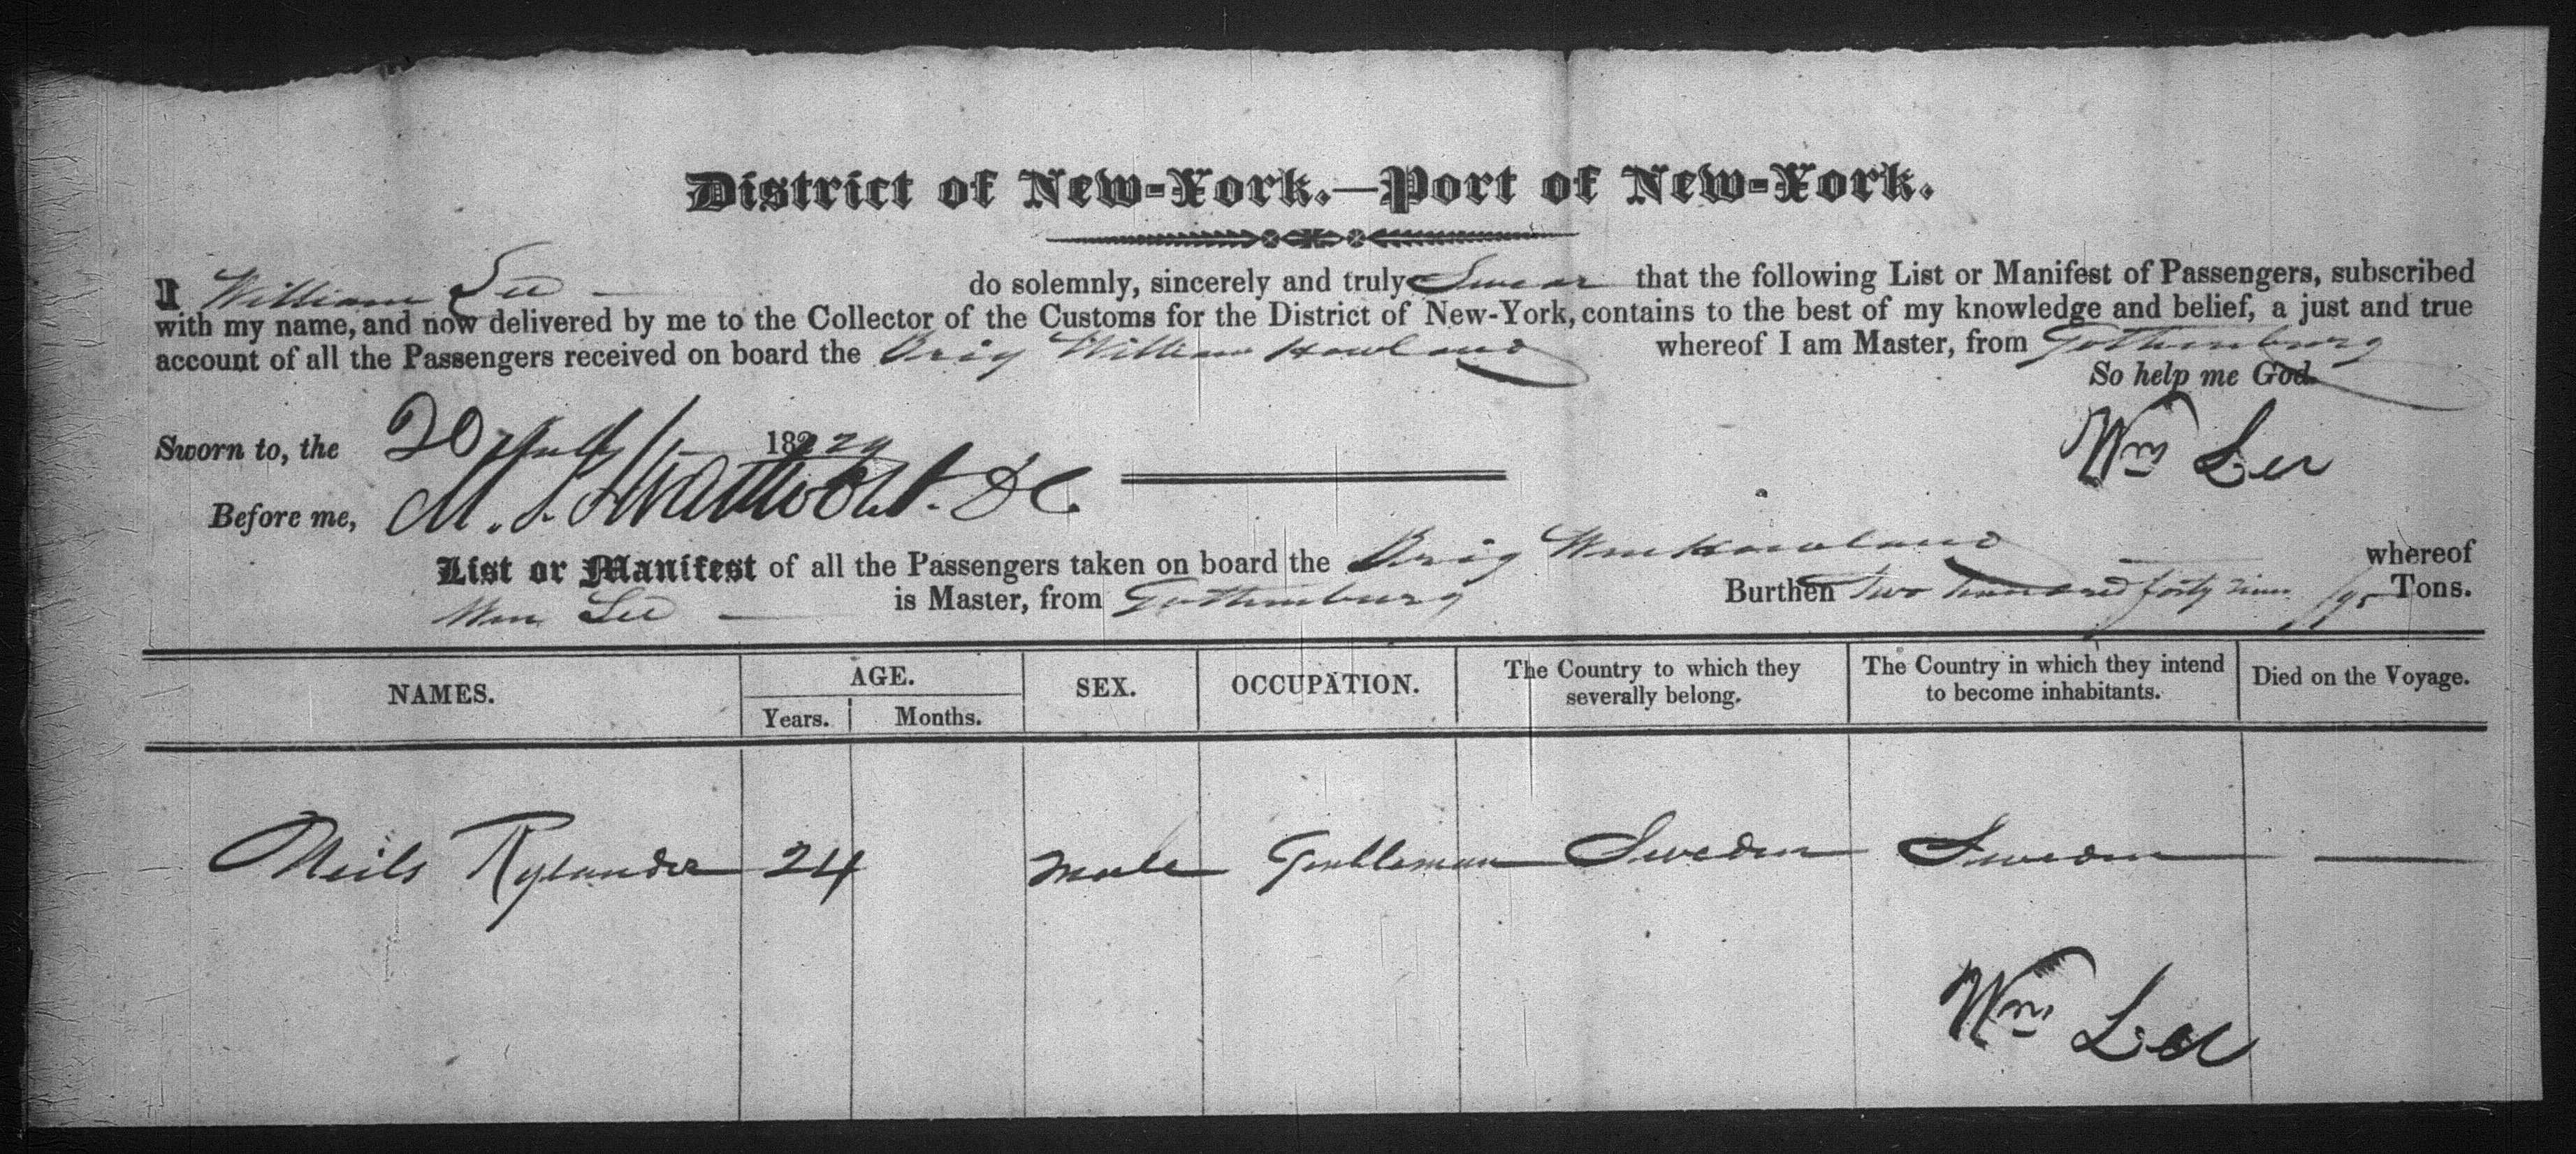 District of New-York.—Port of New-York.
I William Lee do solemnly, sincerely and truly Swear that the following List or Manifest of Passengers, subscribed
with my name, and now delivered by me to the Collector of the Customs for the District of New-York, contains to the best of my knowledge and belief, a just and true
account of all the Passengers received on board the Brig William Howland whereof I am Master, from Gothenburg
So help me God.
Sworn to, the 20 July 182
Wm Lee
Before me,
List or Manifest of all the Passengers taken on board the Brig Wm Howland whereof
Wm Lee is Master, from Gothenburg Burthen Two hundred forty nine /95 Tons.
NAMES. AGE. SEX. OCCUPATION. The Country to which they severally belong. The Country in which they intend to become inhabitants. Died on the Voyage.
Years. Months.
Neils Rylander 24 male Gentleman Sweden Sweden —
Wm Lee